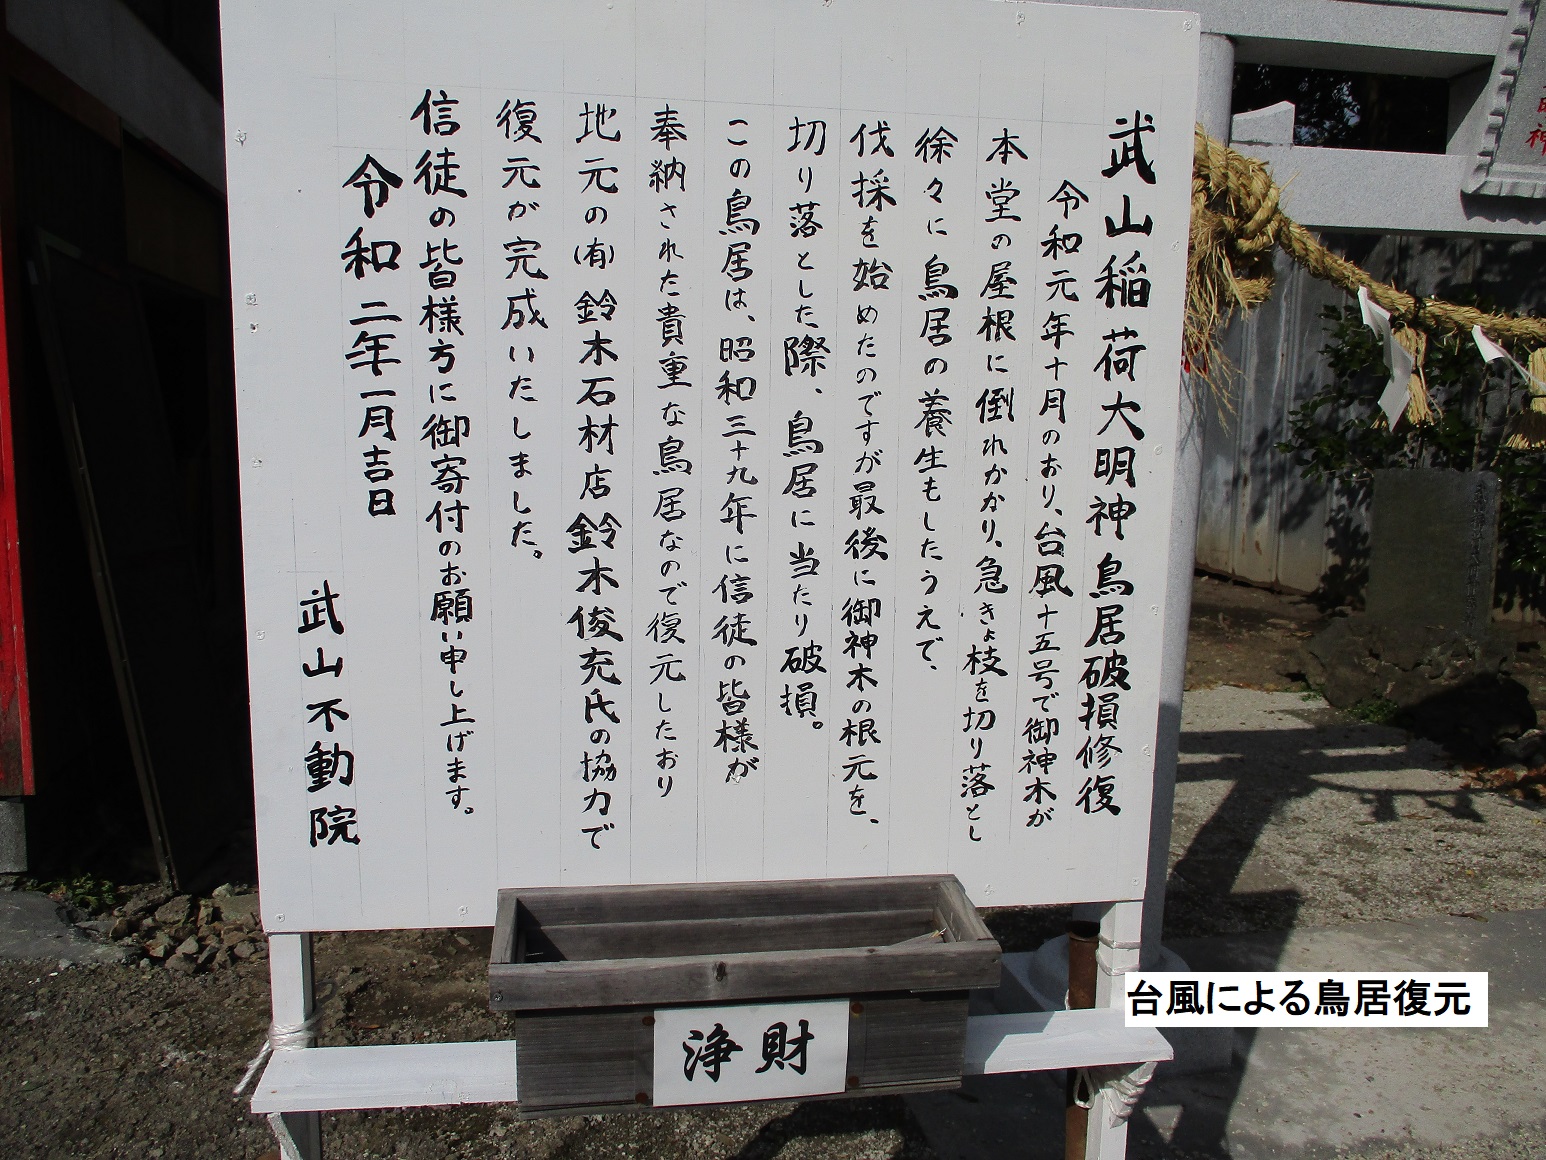 武山稲荷大明神鳥居破損修復
令和元年十月のおり、台風十五号で御神木が
本堂の屋根に倒れかかり、急きょ枝を切り落とし
徐々に鳥居の養生もしたうえで、
伐採を始めたのですが最後に御神木の根元を、
切り落とした際、鳥居に当たり破損。
この鳥居は、昭和三十九年に信徒の皆様が
奉納された貴重な鳥居なので復元したおり
地元の(有)鈴木石材店鈴木俊充氏の協力で
復元が完成いたしました。
信徒の皆様方に御寄付のお願い申し上げます。
令和二年一月吉日
武山不動院
浄財
台風による鳥居復元